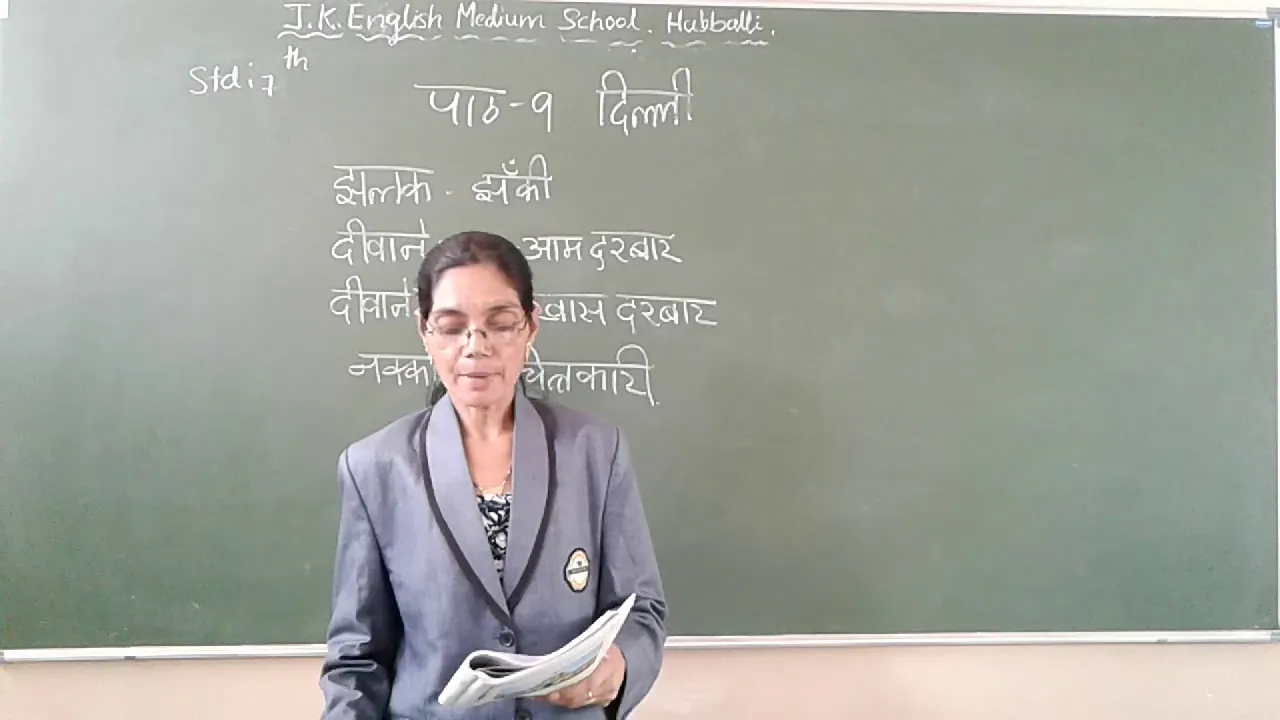 J.K. English Medium School. Hubballi.
Std : 7th
पाठ - १ दिल्ली
झलक - झाँकी
दीवाने आम दरबार
दीवाने खास दरबार